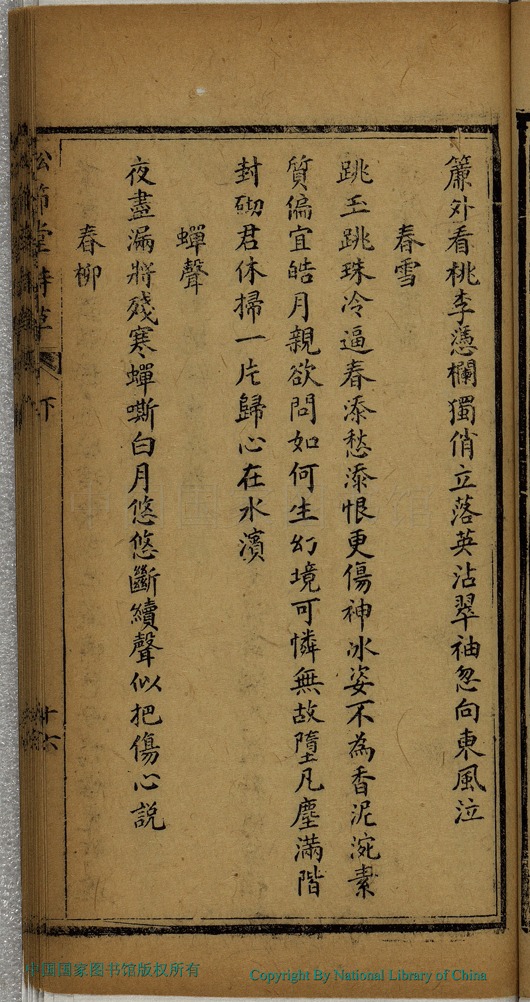 簾外看桃李憑欄獨俏立落英沾翠袖忽向東風泣
春雪
跳玉跳珠冷逼春添愁添恨更傷神冰姿不為香泥涴素
質偏宜皓月親欲問如何生幻境可憐無故墮凡塵滿階
封砌君休掃一片歸心在水濱
蟬聲
夜盡漏將殘寒蟬嘶白月悠悠斷續聲似把傷心說
春柳
松節堂詩草 卷下 十六
中国国家图书馆版权所有
Copyright By National Library of China